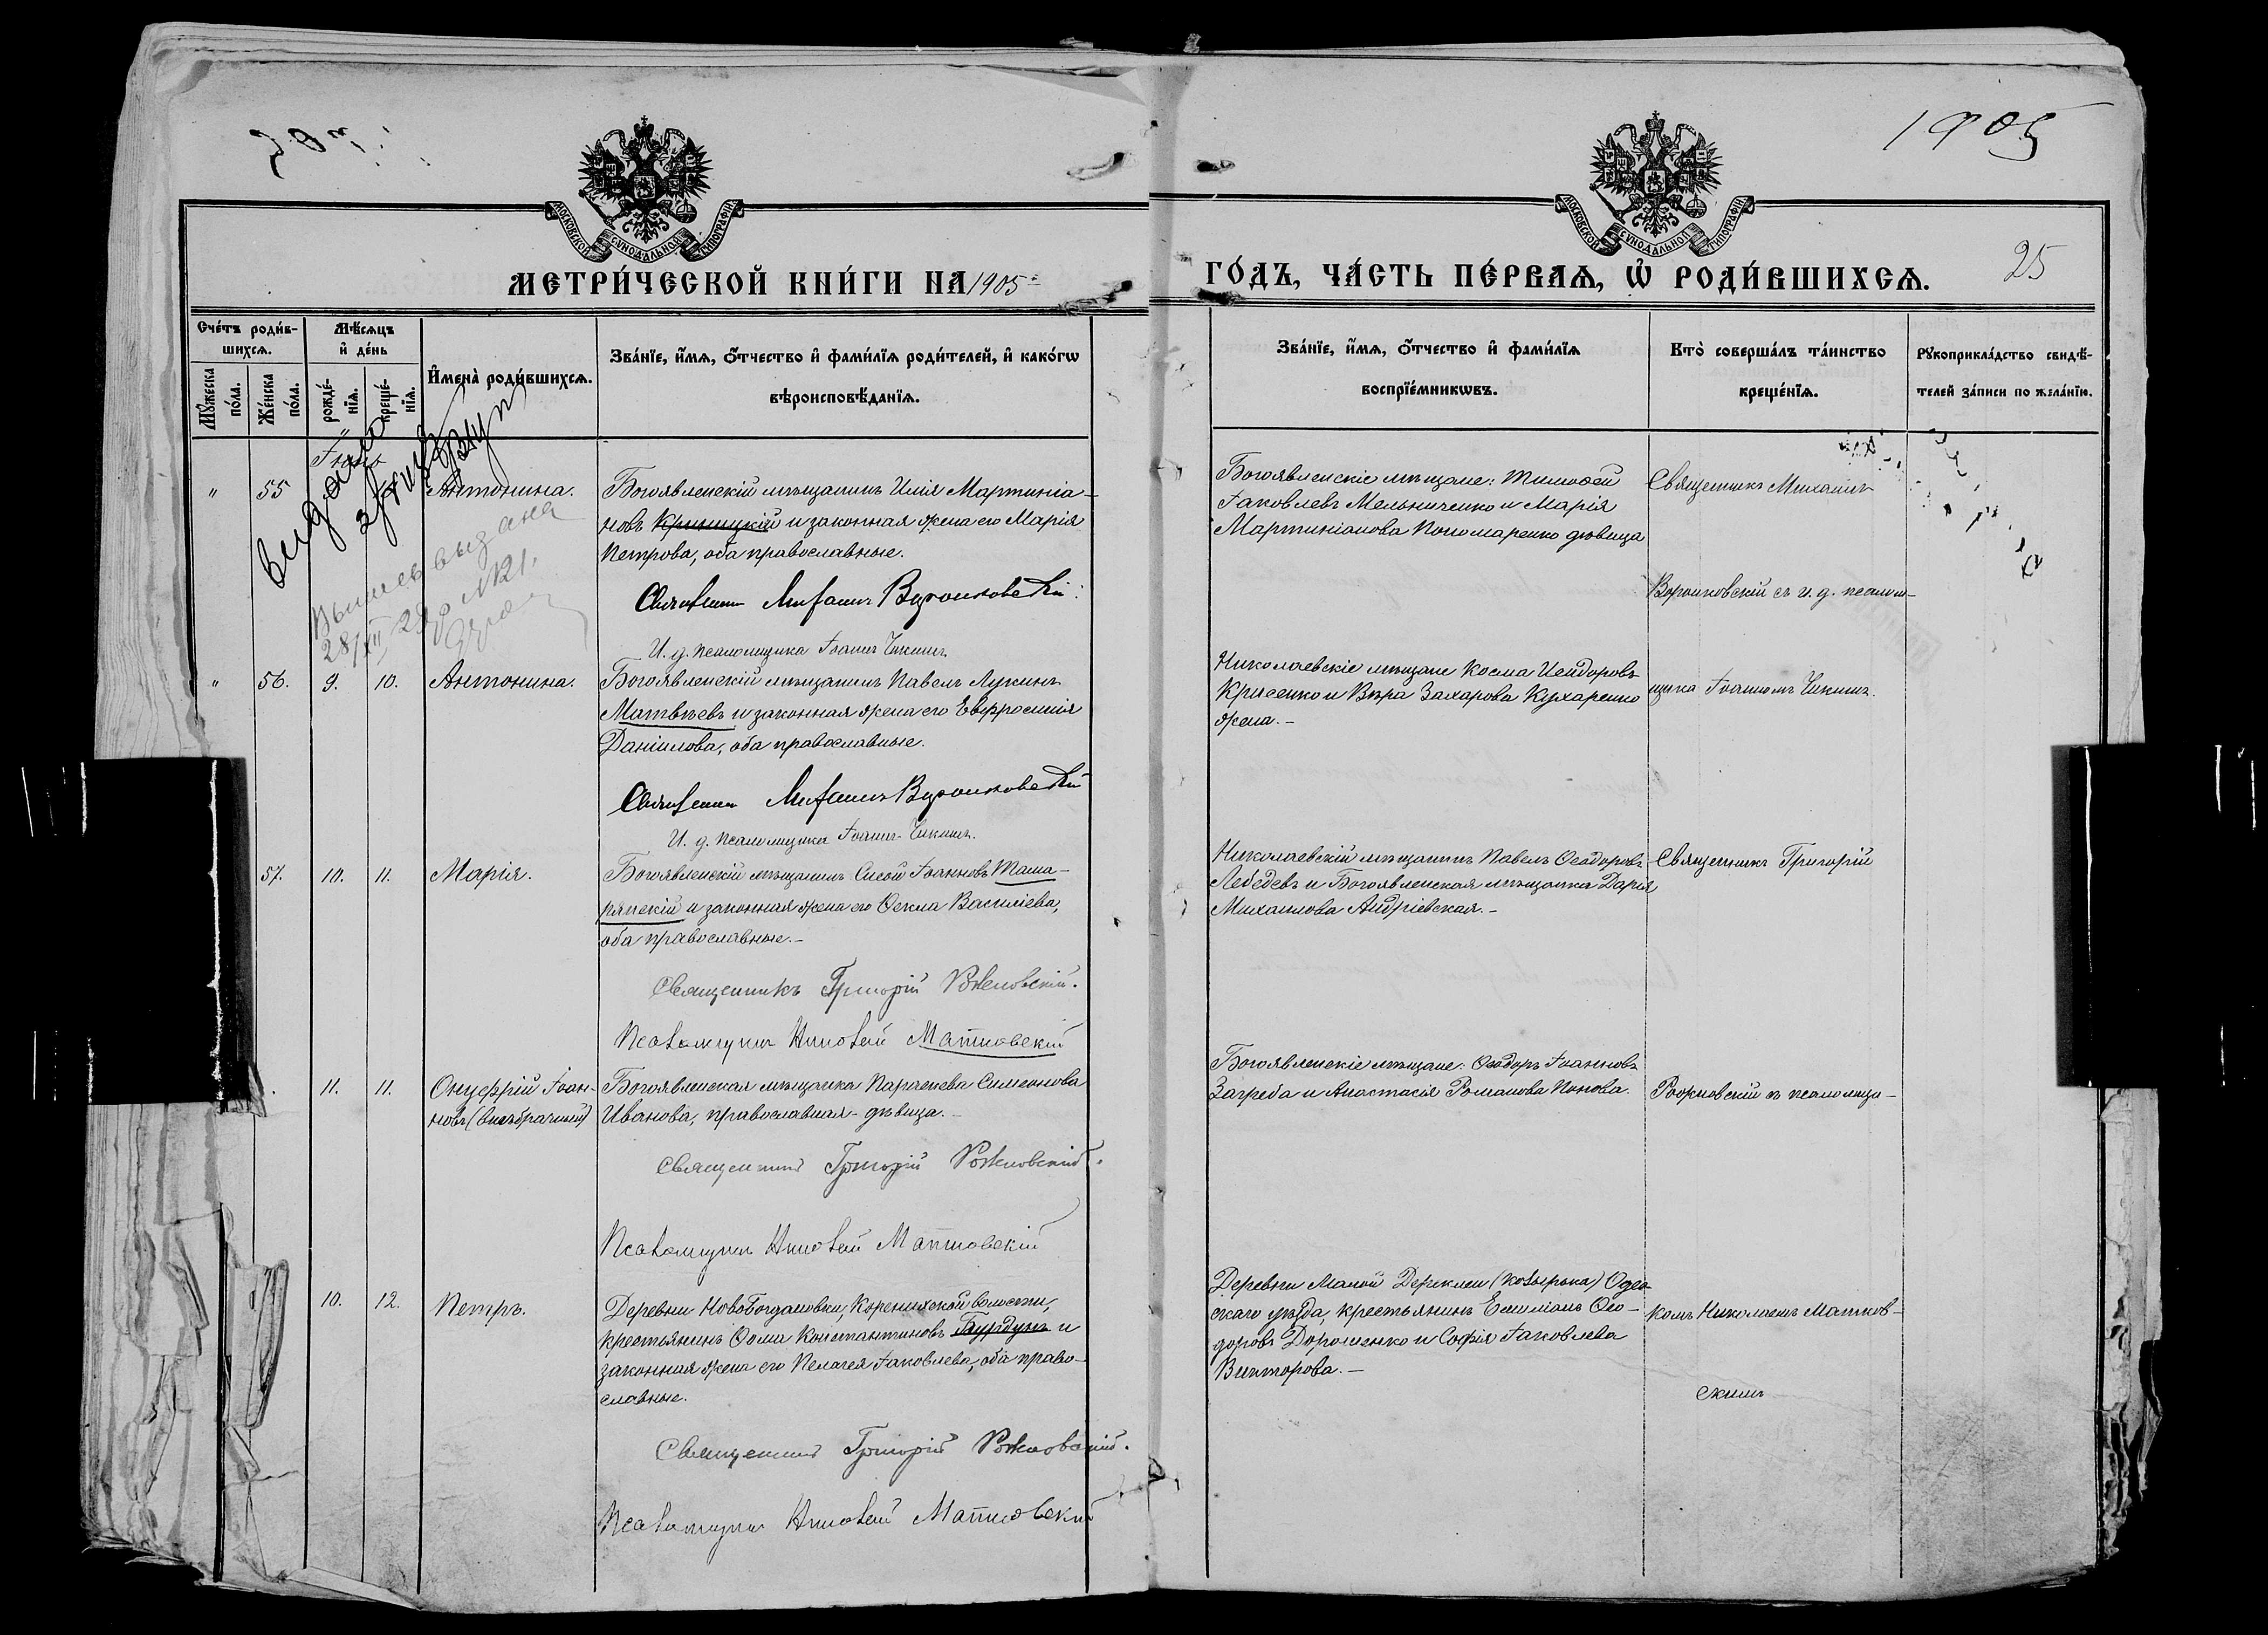 1905
МОСКОВСКОЙ СѴНОДАЛЬНОЙ ТИПОГРАФІИ
МОСКОВСКОЙ СѴНОДАЛЬНОЙ ТИПОГРАФІИ
МЕТРИ́ЧЕСКОЙ КНИ́ГИ НА 1905
ГО́ДЪ, ЧА́СТЬ ПЕ́РВАѦ, Ѡ҆ РОДИ́ВШИХСѦ.
25
Сче́тъ роди́в-
шихсѧ.
Мѣ́сѧцъ
и҆ де́нь
Мꙋ́жеска
по́ла.
Же́нска
по́ла.
рожде́-
нїѧ.
креще́-
нїѧ.
И҆мена̀ роди́вшихсѧ.
Зва́нїе, и҆́мѧ, ѻ҆́тчество и҆ фами́лїѧ роди́телей, и҆ како́гѡ
вѣроисповѣ́данїѧ.
Зва́нїе, и҆́мѧ, ѻ҆́тчество и҆ фами́лїѧ
воспрїе́мникѡвъ.
Кто̀ соверша́лъ та́инство
креще́нїѧ.
Рꙋкоприкла́дство свидѣ́-
телей за́писи по жела́нїю.
" 55 Антонина.
Богоявленскій мѣщанинъ Илія Мартиніа-
новъ Криницкій и законная жена его Марія
Петрова, оба православные.
Священникъ Михаилъ Воронковскій
И. д. псаломщика Іоаннъ Чикинъ
Богоявленскіе мѣщане: Тимоѳей
Іаковлевъ Мельниченко и Марія
Мартиніанова Пономаренко дѣвица
Священникъ Михаилъ
Воронковскій съ и. д. псалом-
выдана
Выпись выдана
28/XII
" 56. 9. 10. Антонина.
Богоявленскій мѣщанинъ Павелъ Лукинъ
Матвѣевъ и законная жена его Евфросинія
Даніилова, оба православные.
Священникъ Михаилъ Воронковскій
И. д. псаломщика Іоаннъ Чикинъ.
Николаевскіе мѣщане Косма Исидоровъ
и Вѣра Захарова Кухаренко
жена.-
щика Іоанномъ Чикинъ.
57. 10. 11. Марія.
Богоявленскій мѣщанинъ Сисой Іоанновъ Таша-
рянскій и законная жена его Ѳекла Василіева,
оба православные.-
Священникъ Григорій Рожновскій.
Псаломщикъ Николай Матковскій
Николаевскій мѣщанинъ Павелъ Ѳеодоровъ
Лебедевъ и Богоявленская мѣщанка Дарія
Михаилова Андріевская.-
Священникъ Григорій
11. 11. Онуфрій Іоан-
новъ (внѣбрачный)
Богоявленская мѣщанка Параскева Симеонова
Иванова, православная - дѣвица.-
Священникъ Григорій Рожновскій.
Псаломщикъ Николай Матковскій
Богоявленскіе мѣщане: Ѳеодоръ Іоанновъ
Загреба и Анастасія Романова Попова.
Рожновскій съ псаломщи-
10. 12. Петръ.
Деревни НовоБогдановки, Коренихской волости,
крестьянинъ Ѳома Константиновъ Бурдунъ и
законная жена его Пелагея Іаковлева, оба право-
славные.
Священникъ Григорій Рожновскій.
Псаломщикъ Николай Матковскій
Деревни Малой Дереклеи (Козырька) Одес-
скаго уѣзда, крестьянинъ Емиліанъ Ѳео-
доровъ Дорошенко и Софія Іаковлева
Викторова.-
комъ Николаемъ Матков-
скимъ